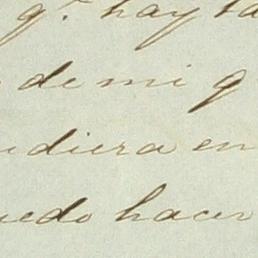 q.e hay ta
de mi q
udiera en
uedo hacer